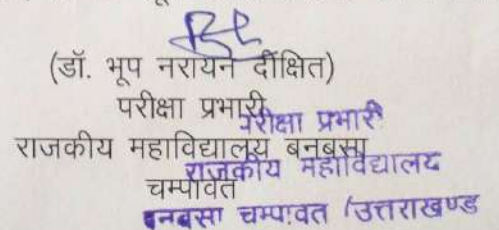 (डॉ. भूप नरायन दीक्षित)
परीक्षा प्रभारी
परीक्षा प्रभारी
राजकीय महाविद्यालय बनबसा
राजकीय महाविद्यालय
चम्पावत
बनबसा चम्पावत (उत्तराखण्ड